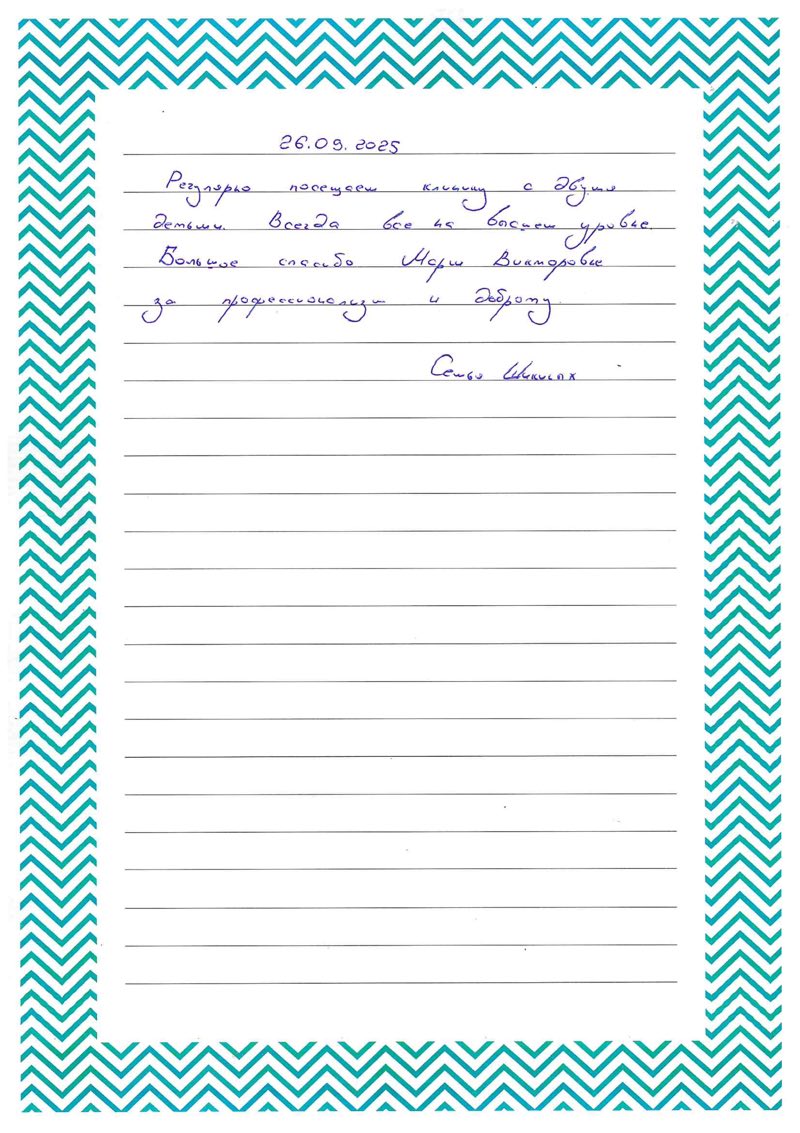 26.09.2025
Регулярно посещаем клинику с двумя
детьми. Всегда все на высшем уровне.
Большое спасибо Марии Викторовне
за профессионализм и доброту.
Семья